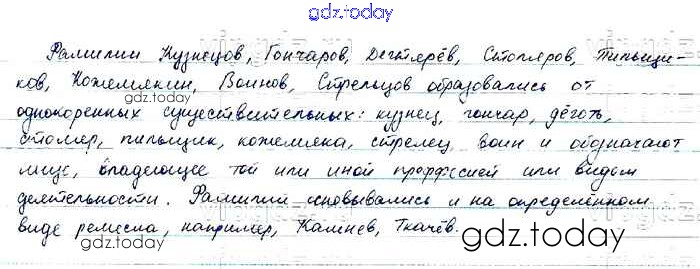 gdz.today
Фамилии Кузнецов, Гончаров, Дегтярёв, Столяров, Пильщи-
ков, Кожемякин, Воинов, Стрельцов образовались от
gdz.today
однокоренных существительных: кузнец, гончар, дёготь,
столяр, пильщик, кожемяка, стрелец, воин и обозначают
лицо, владеющее той или иной профессией или видом
деятельности. Фамилии основывались и на определённом
виде ремесла, например, Калинев, Ткачёв.
gdz.today
gdz.today